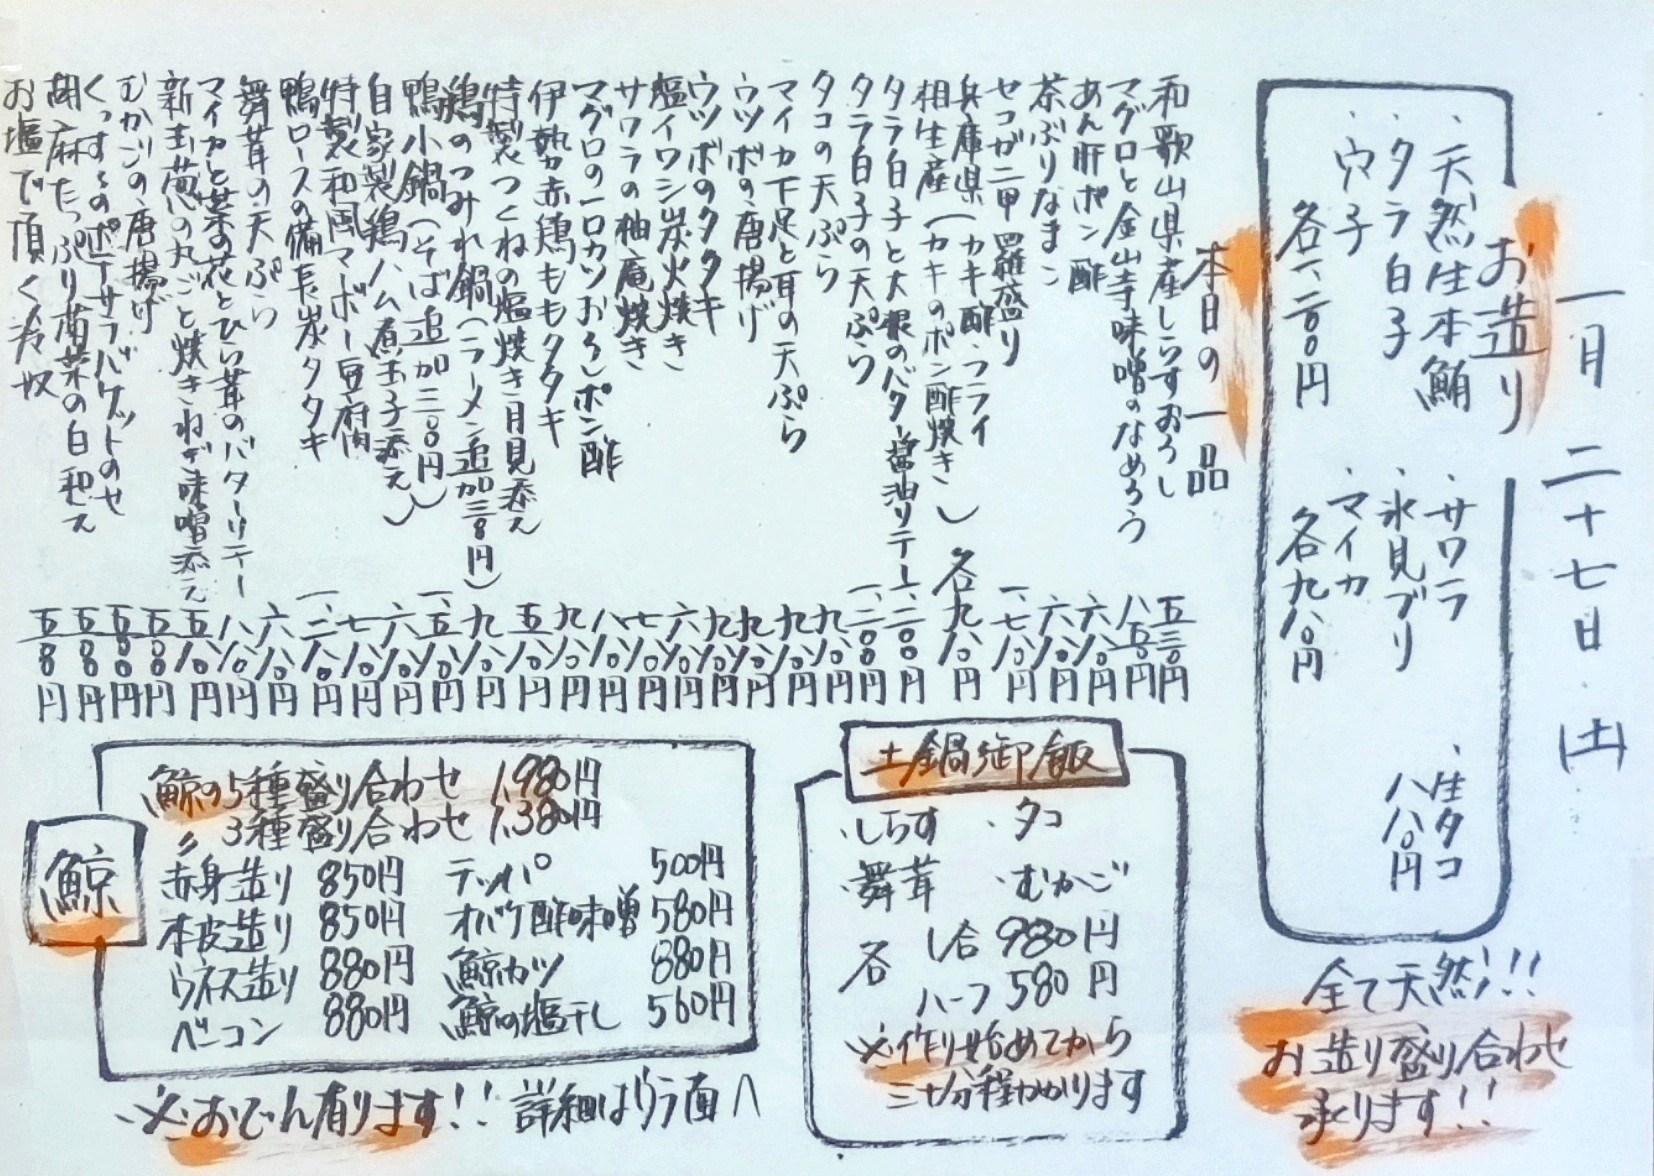 一月二十七日(土)
お造り
・天然生本鮪
・タラ白子
・穴子
各一、二〇〇円
・サワラ
・氷見ブリ
・マイカ
各九八〇円
・生タコ
八八〇円
全て天然!!
お造り盛り合わせ
承ります!!
本日の一品
和歌山県産しらすおろし 五三〇円
マグロと金山寺味噌のなめろう 八五〇円
あん肝ポン酢 六八〇円
茶ぶりなまこ 六八〇円
セコガニ甲羅盛り 一、七八〇円
兵庫県(カキ酢・フライ
相生産(カキのポン酢焼き) 各九八〇円
タラ白子と大根のバター醤油ソテー 一、二〇〇円
タラ白子の天ぷら 一、二〇〇円
タコの天ぷら 九八〇円
マイカ下足と耳の天ぷら 九八〇円
ウツボの唐揚げ 九八〇円
ウツボのタタキ 九八〇円
塩イワシ炭火焼き 六八〇円
サワラの柚庵焼き 七八〇円
マグロの一口カツおろしポン酢 八八〇円
伊勢赤鶏ももタタキ 九八〇円
特製つくねの塩焼き月見添え 五八〇円
鶏のつみれ鍋(ラーメン追加三〇〇円) 九八〇円
鴨小鍋(そば追加三〇〇円) 一、五八〇円
自家製鶏ハム煮玉子添え 六八〇円
特製和風マーボー豆腐 七八〇円
鴨ロースの備長炭タタキ 一、二八〇円
舞茸の天ぷら 六八〇円
マイカと菜の花とひら茸のバターソテー 八八〇円
新玉葱の丸ごと焼きねぎ味噌添え 五八〇円
むかごの唐揚げ 五〇〇円
くっすんのポテサラバゲットのせ 五〇〇円
胡麻たっぷり菊菜の白和え 五〇〇円
お塩で頂く冷奴 五〇〇円
土鍋御飯
・しらす ・タコ
・舞茸 ・むかご
各 1合 980円
ハーフ 580円
※作り始めてから
三十分程かかります
鯨
鯨の5種盛り合わせ 1,980円
〃 3種盛り合わせ 1,380円
赤身造り 850円 テッパ 500円
本皮造り 850円 オバケ酢味噌 580円
ウネス造り 880円 鯨カツ 880円
ベーコン 880円 鯨の塩干し 560円
※おでん有ります!! 詳細はウラ面へ